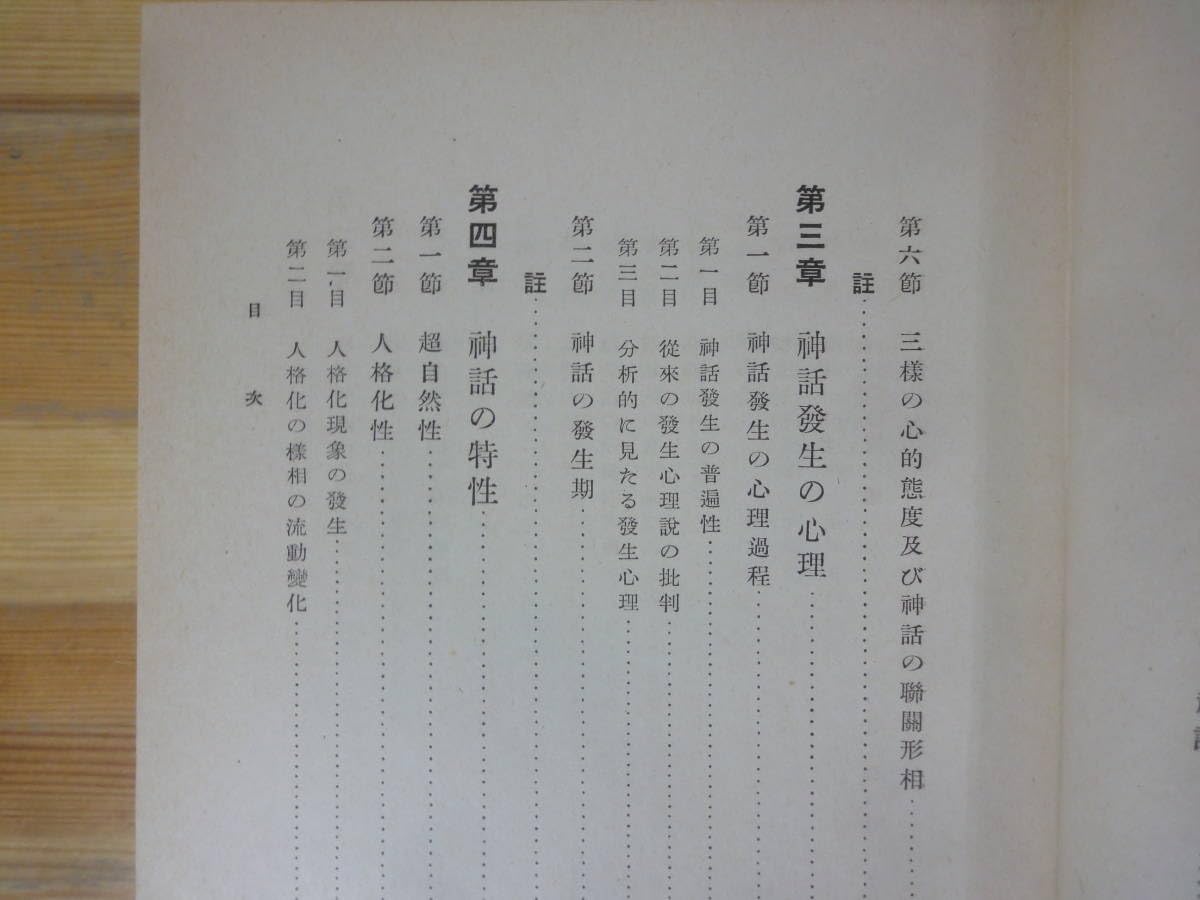 第六節 三樣の心的態度及び神話の聯關形相
註
第三章 神話發生の心理
第一節 神話發生の心理過程
第一目 神話發生の普遍性
第二目 從來の發生心理說の批判
第三目 分析的に見たる發生心理
第二節 神話の發生期
註
第四章 神話の特性
第一節 超自然性
第二節 人格化性
第一目 人格化現象の發生
第二目 人格化の樣相の流動變化
目次